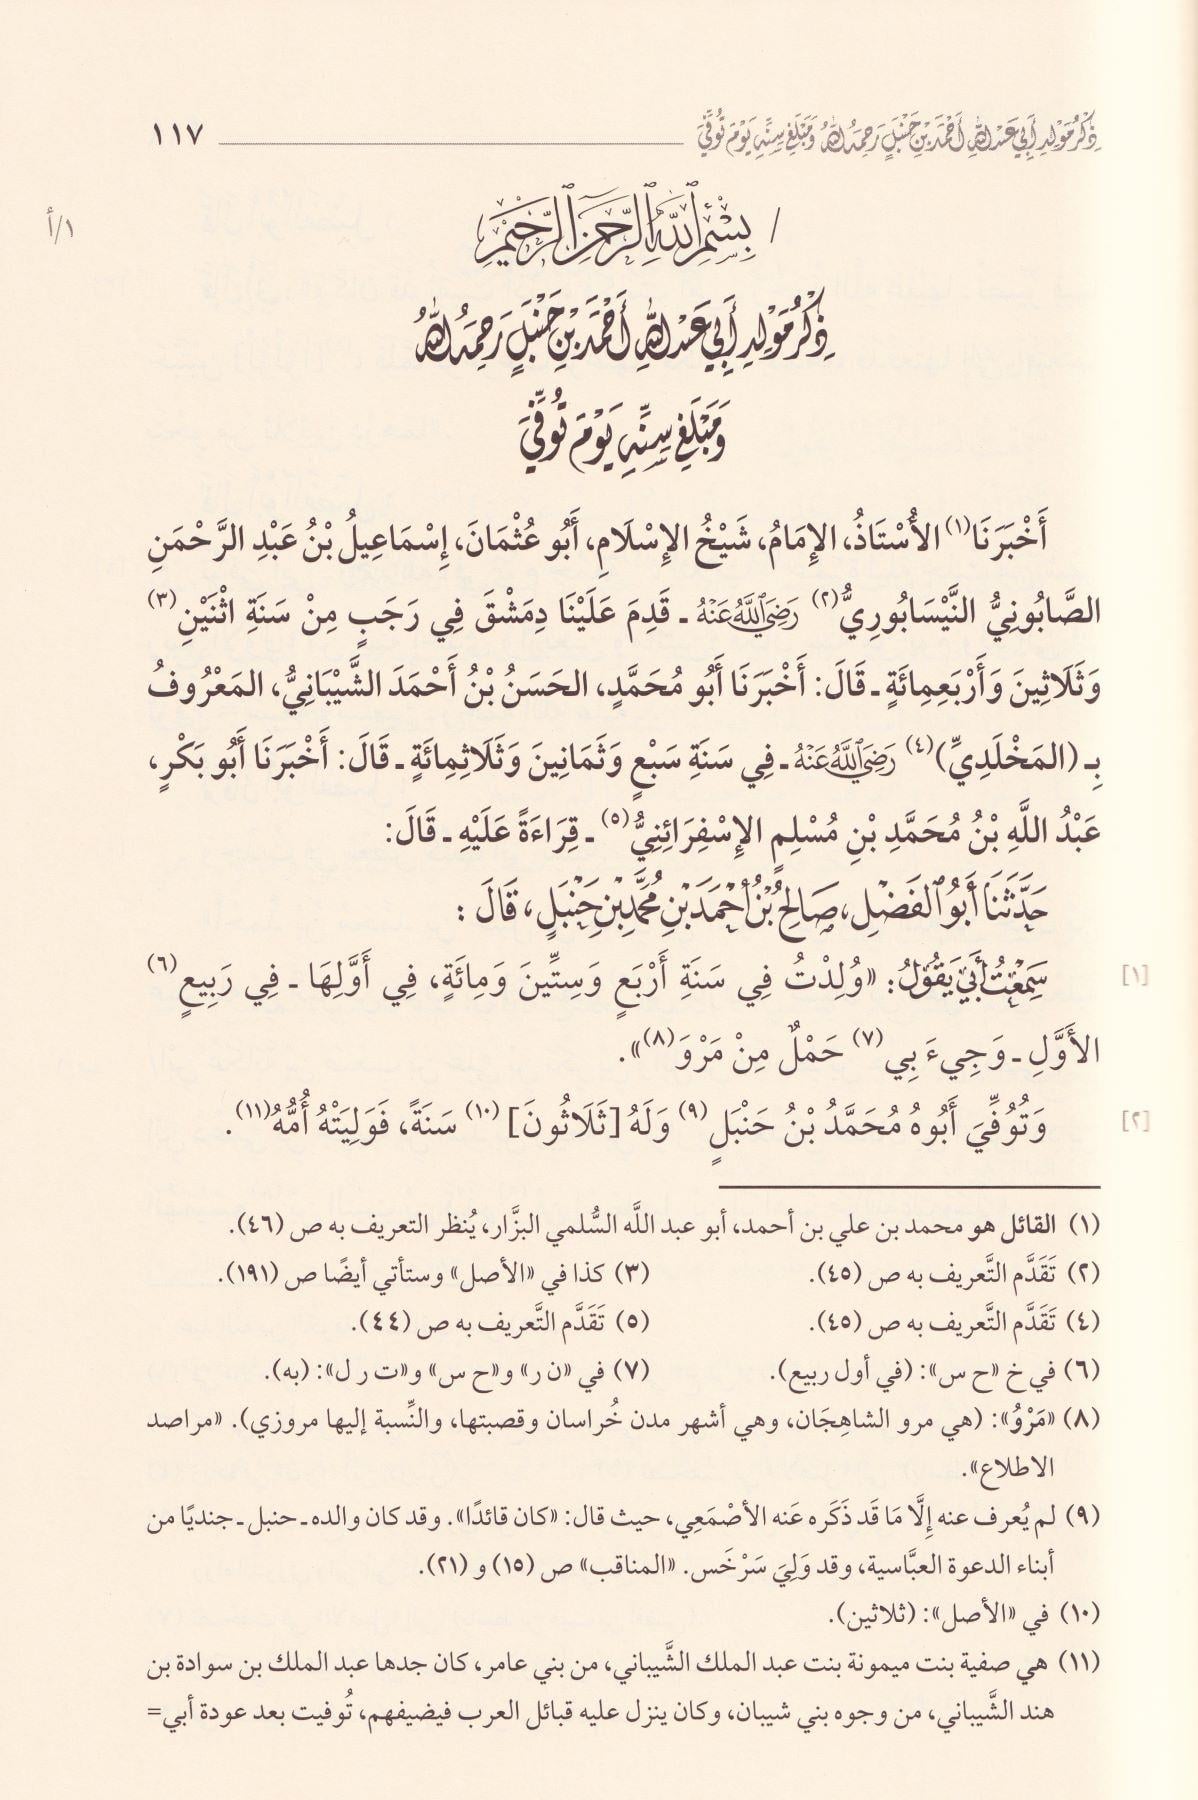 ذِكْرُ مَوْلِدِ أَبِي عَبْدِ اللَّهِ أَحْمَدَ بْنِ حَنْبَلٍ رَحِمَهُ اللَّهُ وَمَبْلَغِ سِنِّهِ يَوْمَ تُوُفِّيَ ١١٧
/ بِسْمِ اللَّهِ الرَّحْمَنِ الرَّحِيمِ
١/أ
ذِكْرُ مَوْلِدِ أَبِي عَبْدِ اللَّهِ أَحْمَدَ بْنِ حَنْبَلٍ رَحِمَهُ اللَّهُ
وَمَبْلَغِ سِنِّهِ يَوْمَ تُوُفِّيَ
أَخْبَرَنَا(١) الأُسْتَاذُ، الإِمَامُ، شَيْخُ الإِسْلَامِ، أَبُو عُثْمَانَ، إِسْمَاعِيلُ بْنُ عَبْدِ الرَّحْمَنِ
الصَّابُونِيُّ النَّيْسَابُورِيُّ(٢) رَضِيَ اللَّهُ عَنْهُ ـ قَدِمَ عَلَيْنَا دِمَشْقَ فِي رَجَبٍ مِنْ سَنَةِ اثْنَيْنِ(٣)
وَثَلَاثِينَ وَأَرْبَعِمِائَةٍ ـ قَالَ: أَخْبَرَنَا أَبُو مُحَمَّدٍ، الحَسَنُ بْنُ أَحْمَدَ الشَّيْبَانِيُّ، المَعْرُوفُ
بِـ (المَخْلَدِيِّ)(٤) رَضِيَ اللَّهُ عَنْهُ ـ فِي سَنَةِ سَبْعٍ وَثَمَانِينَ وَثَلَاثِمِائَةٍ ـ قَالَ: أَخْبَرَنَا أَبُو بَكْرٍ،
عَبْدُ اللَّهِ بْنُ مُحَمَّدِ بْنِ مُسْلِمٍ الإِسْفِرَائِنِيُّ(٥) ـ قِرَاءَةً عَلَيْهِ ـ قَالَ:
حَدَّثَنَا أَبُو الفَضْلِ، صَالِحُ بْنُ أَحْمَدَ بْنِ مُحَمَّدِ بْنِ حَنْبَلٍ، قَالَ :
[١] سَمِعْتُ أَبِي يَقُولُ: «وُلِدْتُ فِي سَنَةِ أَرْبَعٍ وَسِتِّينَ وَمِائَةٍ، فِي أَوَّلِهَا ـ فِي رَبِيعٍ(٦)
الأَوَّلِ ـ وَجِيءَ بِي(٧) حَمْلٌ مِنْ مَرْوَ(٨)».
[٢] وَتُوُفِّيَ أَبُوهُ مُحَمَّدُ بْنُ حَنْبَلٍ(٩) وَلَهُ [ثَلَاثُونَ](١٠) سَنَةً، فَوَلِيَتْهُ أُمُّهُ(١١).
(١) القائل هو محمد بن علي بن أحمد، أبو عبد اللَّه السُّلمي البزَّار، يُنظر التعريف به ص (٤٦).
(٢) تَقَدَّم التَّعريف به ص (٤٥). (٣) كذا في «الأصل» وستأتي أيضًا ص (١٩١).
(٤) تَقَدَّم التَّعريف به ص (٤٥). (٥) تَقَدَّم التَّعريف به ص (٤٤).
(٦) في خ «ح س»: (في أول ربيع). (٧) في «ن ر» و«ح س» و«ت ر ل»: (به).
(٨) «مَرْوُ»: (هي مرو الشاهِجَان، وهي أشهر مدن خُراسان وقصبتها، والنِّسبة إليها مروزي). «مراصد
الاطلاع».
(٩) لم يُعرف عنه إِلَّا مَا قَد ذَكَره عَنه الأصْمَعِي، حيث قال: «كان قائدًا». وقد كان والده ـ حنبل ـ جنديًا من
أبناء الدعوة العبَّاسية، وقد وَلِيَ سَرْخَس. «المناقب» ص (١٥) و (٢١).
(١٠) في «الأصل»: (ثلاثين).
(١١) هي صفية بنت ميمونة بنت عبد الملك الشَّيباني، من بني عامر، كان جدها عبد الملك بن سوادة بن
هند الشَّيباني، من وجوه بني شيبان، وكان ينزل عليه قبائل العرب فيضيفهم، تُوفيت بعد عودة أبي=